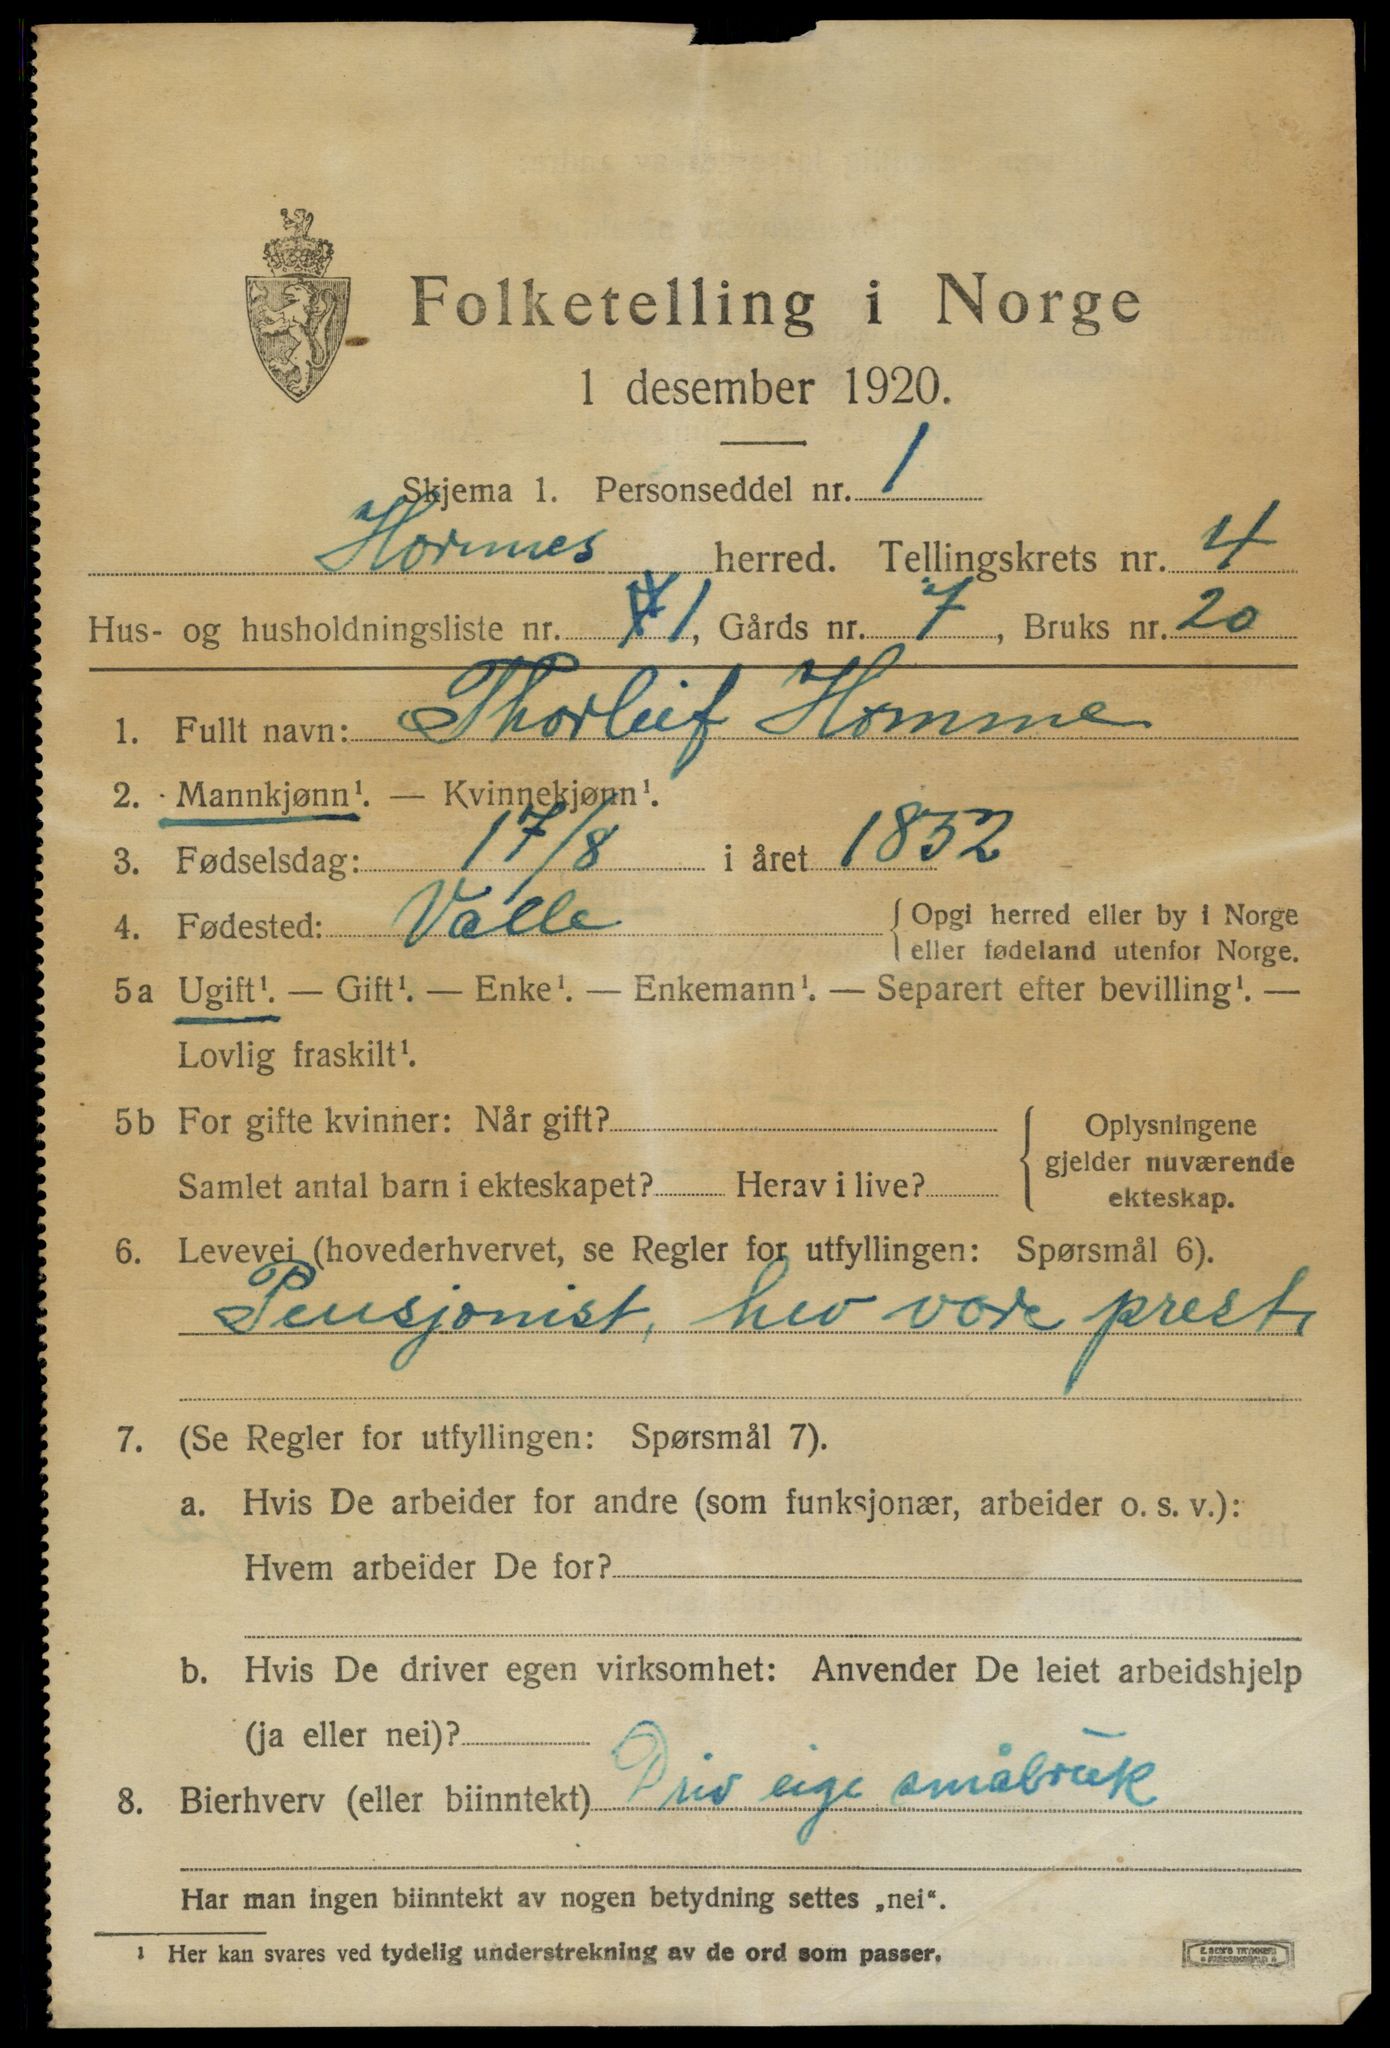 Folketelling i Norge
1 desember 1920.
Skjema 1. Personseddel nr. 1
Hornnes herred. Tellingskrets nr. 4
Hus- og husholdningsliste nr. 1, Gårds nr. 7, Bruks nr. 20
1. Fullt navn: Thorleif Homme
2. Mannkjønn¹. — Kvinnekjønn¹.
3. Fødselsdag: 17/8 i året 1832
4. Fødested: Valle { Opgi herred eller by i Norge
eller fødeland utenfor Norge.
5a Ugift¹. — Gift¹. — Enke¹. — Enkemann¹. — Separert efter bevilling¹. —
Lovlig fraskilt¹.
5b For gifte kvinner: Når gift?
Samlet antal barn i ekteskapet? Herav i live?
{ Oplysningene
gjelder nuværende
ekteskap.
6. Levevei (hovederhvervet, se Regler for utfyllingen: Spørsmål 6).
Pensjonist, hev vore prest,
7. (Se Regler for utfyllingen: Spørsmål 7).
a. Hvis De arbeider for andre (som funksjonær, arbeider o. s. v.):
Hvem arbeider De for?
b. Hvis De driver egen virksomhet: Anvender De leiet arbeidshjelp
(ja eller nei)?
8. Bierhverv (eller biinntekt) Driv eige småbruk
Har man ingen biinntekt av nogen betydning settes „nei“.
¹ Her kan svares ved tydelig understrekning av de ord som passer.